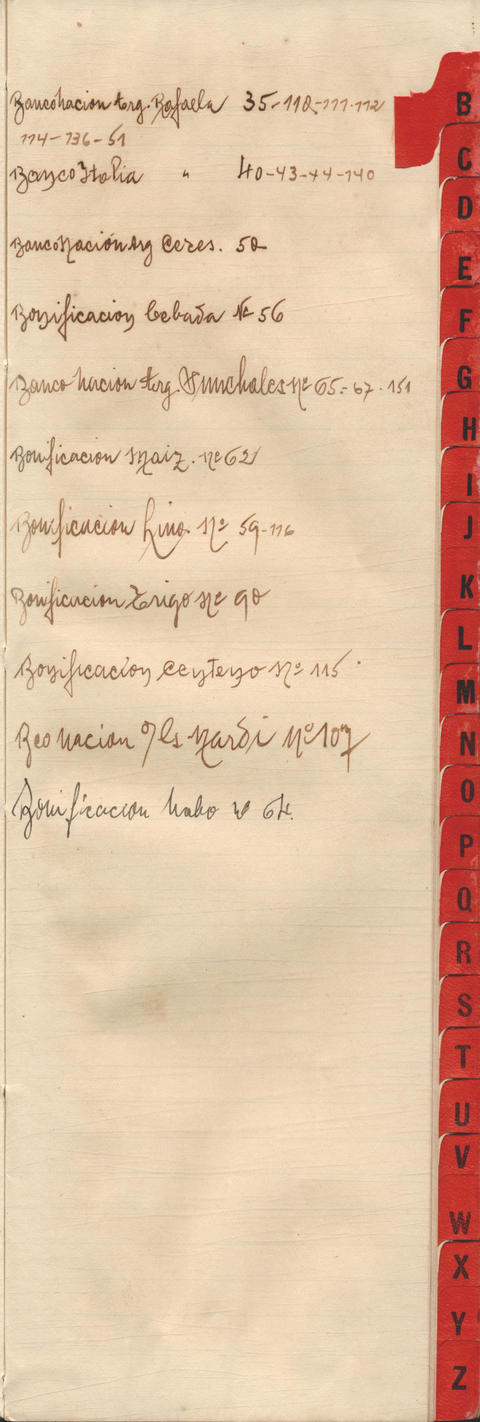 Banco Nacion Arg. Rafaela 35-110-111-112
114-136-51
Banco Italia " 40-43-44-140
Banco Nación Arg Ceres. 50
Bonificacion Cebada Nº 56
Banco Nacion Arg. Sunchales Nº 65-67-151
Bonificacion Maiz. Nº 62
Bonificacion Lino Nº 59-116
Bonificacion Trigo Nº 90
Bonificacion Centeno Nº 115
Bco Nacion Nº 107
Bonificacion Nabo Nº 64.
B
C
D
E
F
G
H
I
J
K
L
M
N
O
P
Q
R
S
T
U
V
W
X
Y
Z